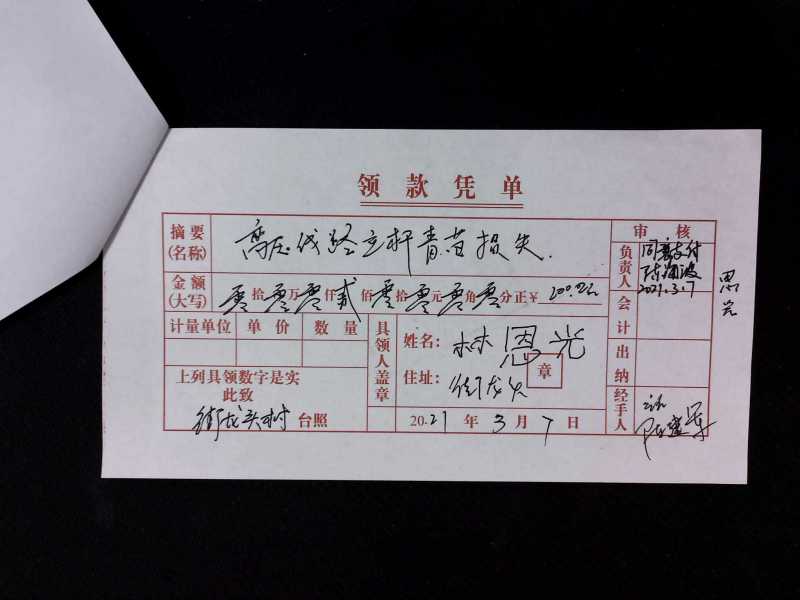 领款凭单
摘要(名称) 高压线路立杆青苗损失 审核
金额(大写) 零拾零万零仟贰佰零拾零元零角零分正¥ 200.00元
负责人 同意支付
2021.3.7
思光
计量单位 单价 数量
具领人盖章
姓名: 林恩光
住址: 街龙头
章
会计
出纳
经手人
上列具领数字是实
此致
街龙头村 台照
2021年3月7日